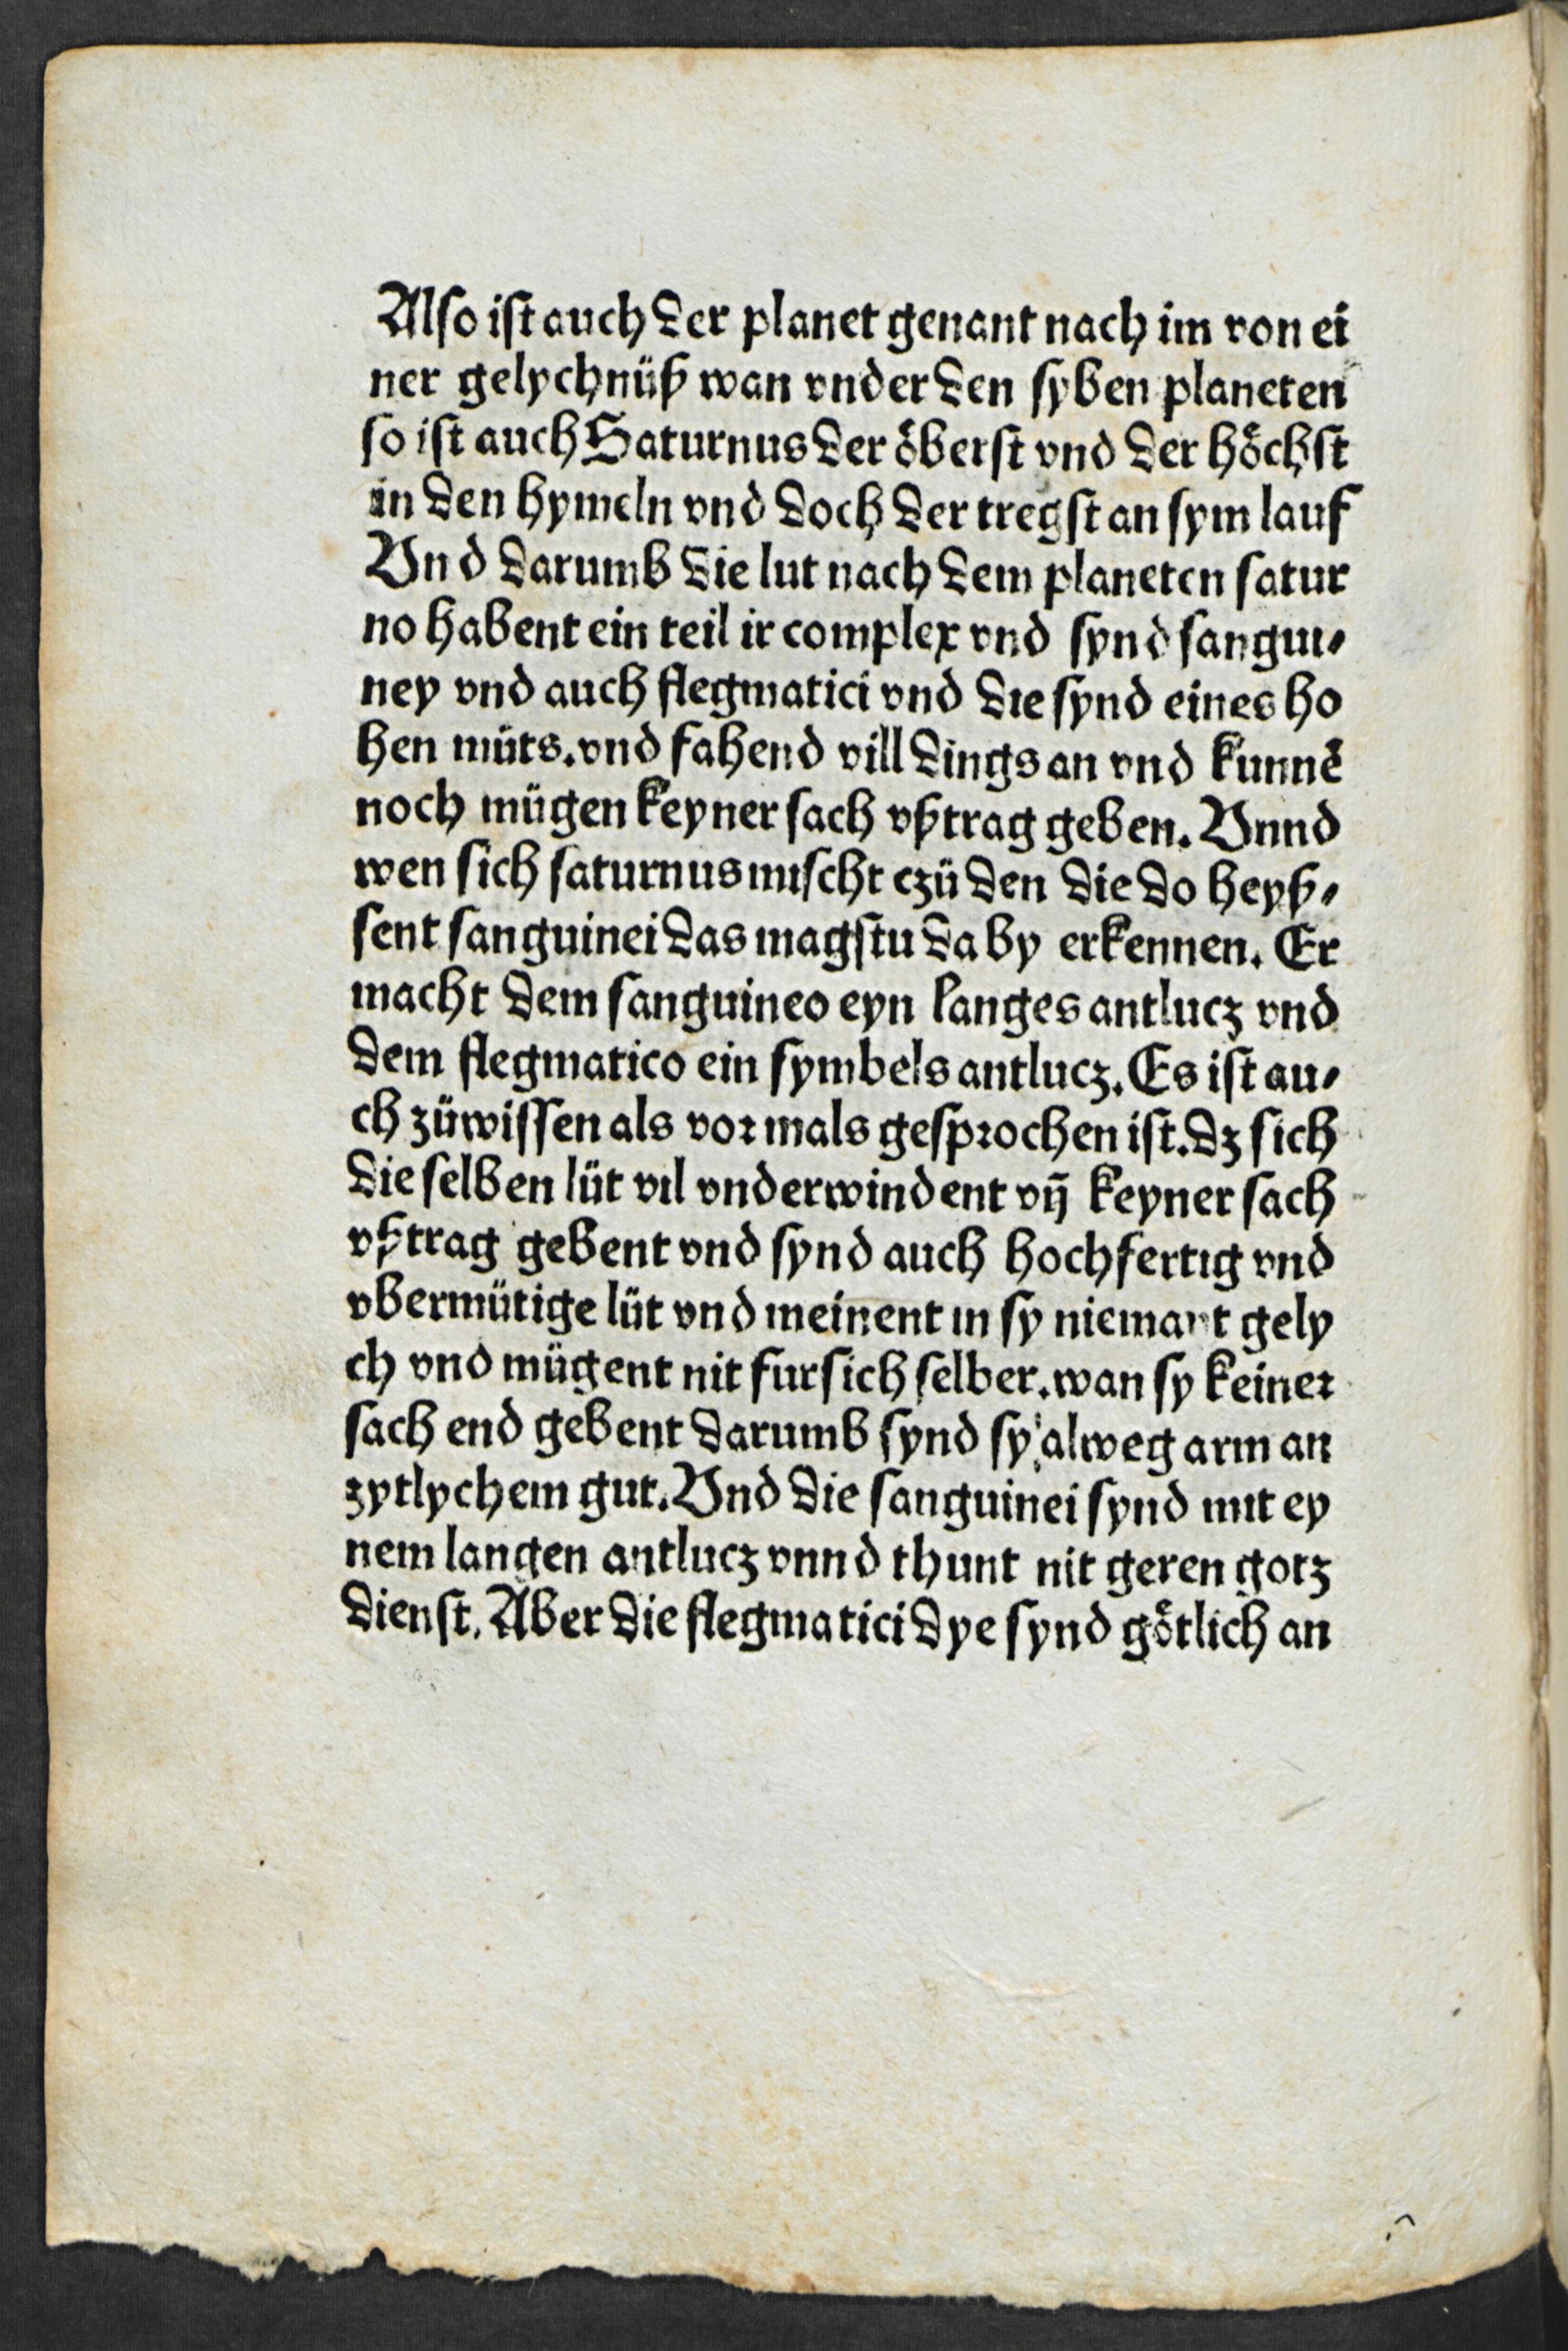 Also ist auch der planet genant nach im von ei
ner gelychnüß wan vnder den syben planeten
so ist auch Saturnus der öberst vnd der höchst
in den hymeln vnd doch der tregst an sym lauf
Vnd darumb die lut nach dem planeten satur
no habent ein teil ir complex vnd synd sangui⸗
ney vnd auch flegmatici vnd die synd eines ho
hen müts. vnd fahend vill dings an vnd kunnē
noch mügen keyner sach vßtrag geben. Vnnd
wen sich saturnus mischt czü den die do heyß⸗
sent sanguinei das magstu da by erkennen. Er
macht dem sanguineo eyn langes antlucz vnd
dem flegmatico ein symbels antlucz. Es ist au⸗
ch züwissen als vor mals gesprochen ist. dz sich
die selben lüt vil vnderwindent vn̄ keyner sach
vßtrag gebent vnd synd auch hochfertig vnd
vbermütige lüt vnd meinent in sy niemant gely
ch vnd mügent nit fur sich selber. wan sy keiner
sach end gebent darumb synd sy alweg arm an
zytlychem gut. Vnd die sanguinei synd mit ey
nem langen antlucz vnnd thunt nit geren gotz
dienst. Aber die flegmatici dye synd götlich an